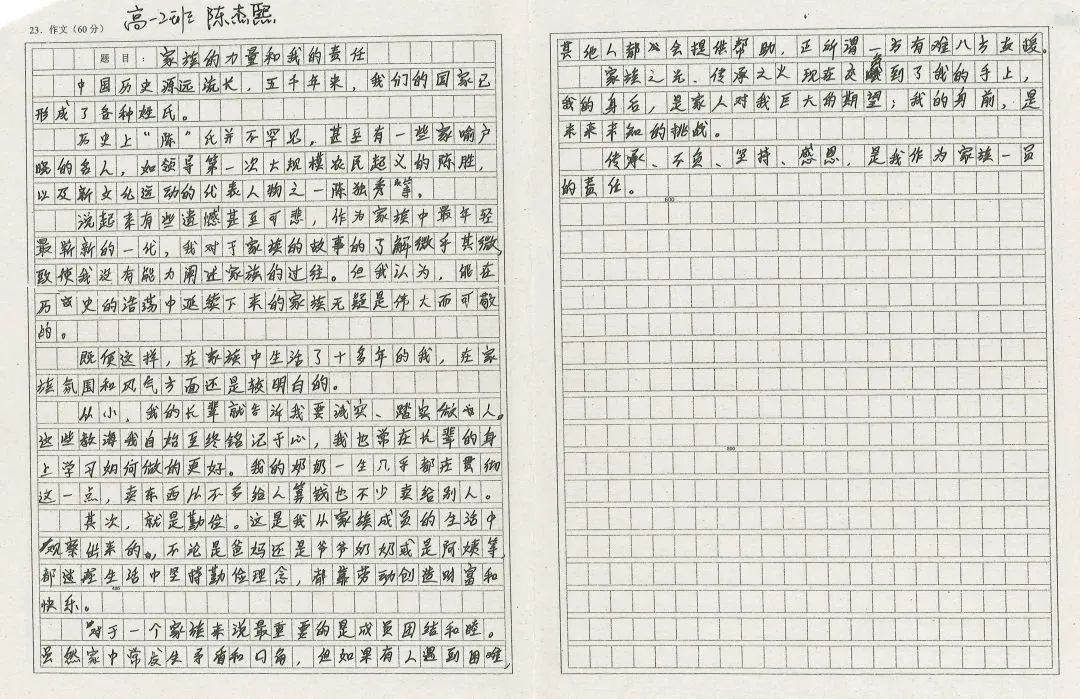 高一2班 陈杰熙
23．作文（60分）
题目：家族的力量和我的责任
中国历史源远流长，五千年来，我们的国家已
形成了各种姓氏。
历史上“陈”氏并不罕见，甚至有一些家喻户
晓的名人，如领导第一次大规模农民起义的陈胜，
以及新文化运动的代表人物之一陈独秀等。
说起来有些遗憾甚至可悲，作为家族中最年轻
最崭新的一代，我对于家族的故事的了解微乎其微，
致使我没有能力阐述家族的过往。但我认为，能在
历史的浩荡中延续下来的家族无疑是伟大而可敬
的。
既便这样，在家族中生活了十多年的我，在家
族氛围和风气方面还是较明白的。
从小，我的长辈就告诉我要诚实、踏实做人。
这些教诲我自始至终铭记于心，我也常在长辈的身
上学习如何做的更好。我的奶奶一生几乎都在贯彻
这一点，卖东西从不多给人算钱也不少卖给别人。
其次，就是勤俭。这是我从家族成员的生活中
观察出来的，不论是爸妈还是爷爷奶奶或是阿姨等，
都这在生活中坚持勤俭理念，都靠劳动创造财富和
400
快乐。
对于一个家族来说最重要的是成员团结和睦。
虽然家中常发生矛盾和口角，但如果有人遇到困难，
其他人都会提供帮助，正所谓一方有难八方支援。
家族之光、传承之火现在交到了我的手上，
我的身后，是家人对我巨大的期望；我的身前，是
未来未知的挑战。
传承、不负、坚持、感恩，是我作为家族一员
的责任。
600
800